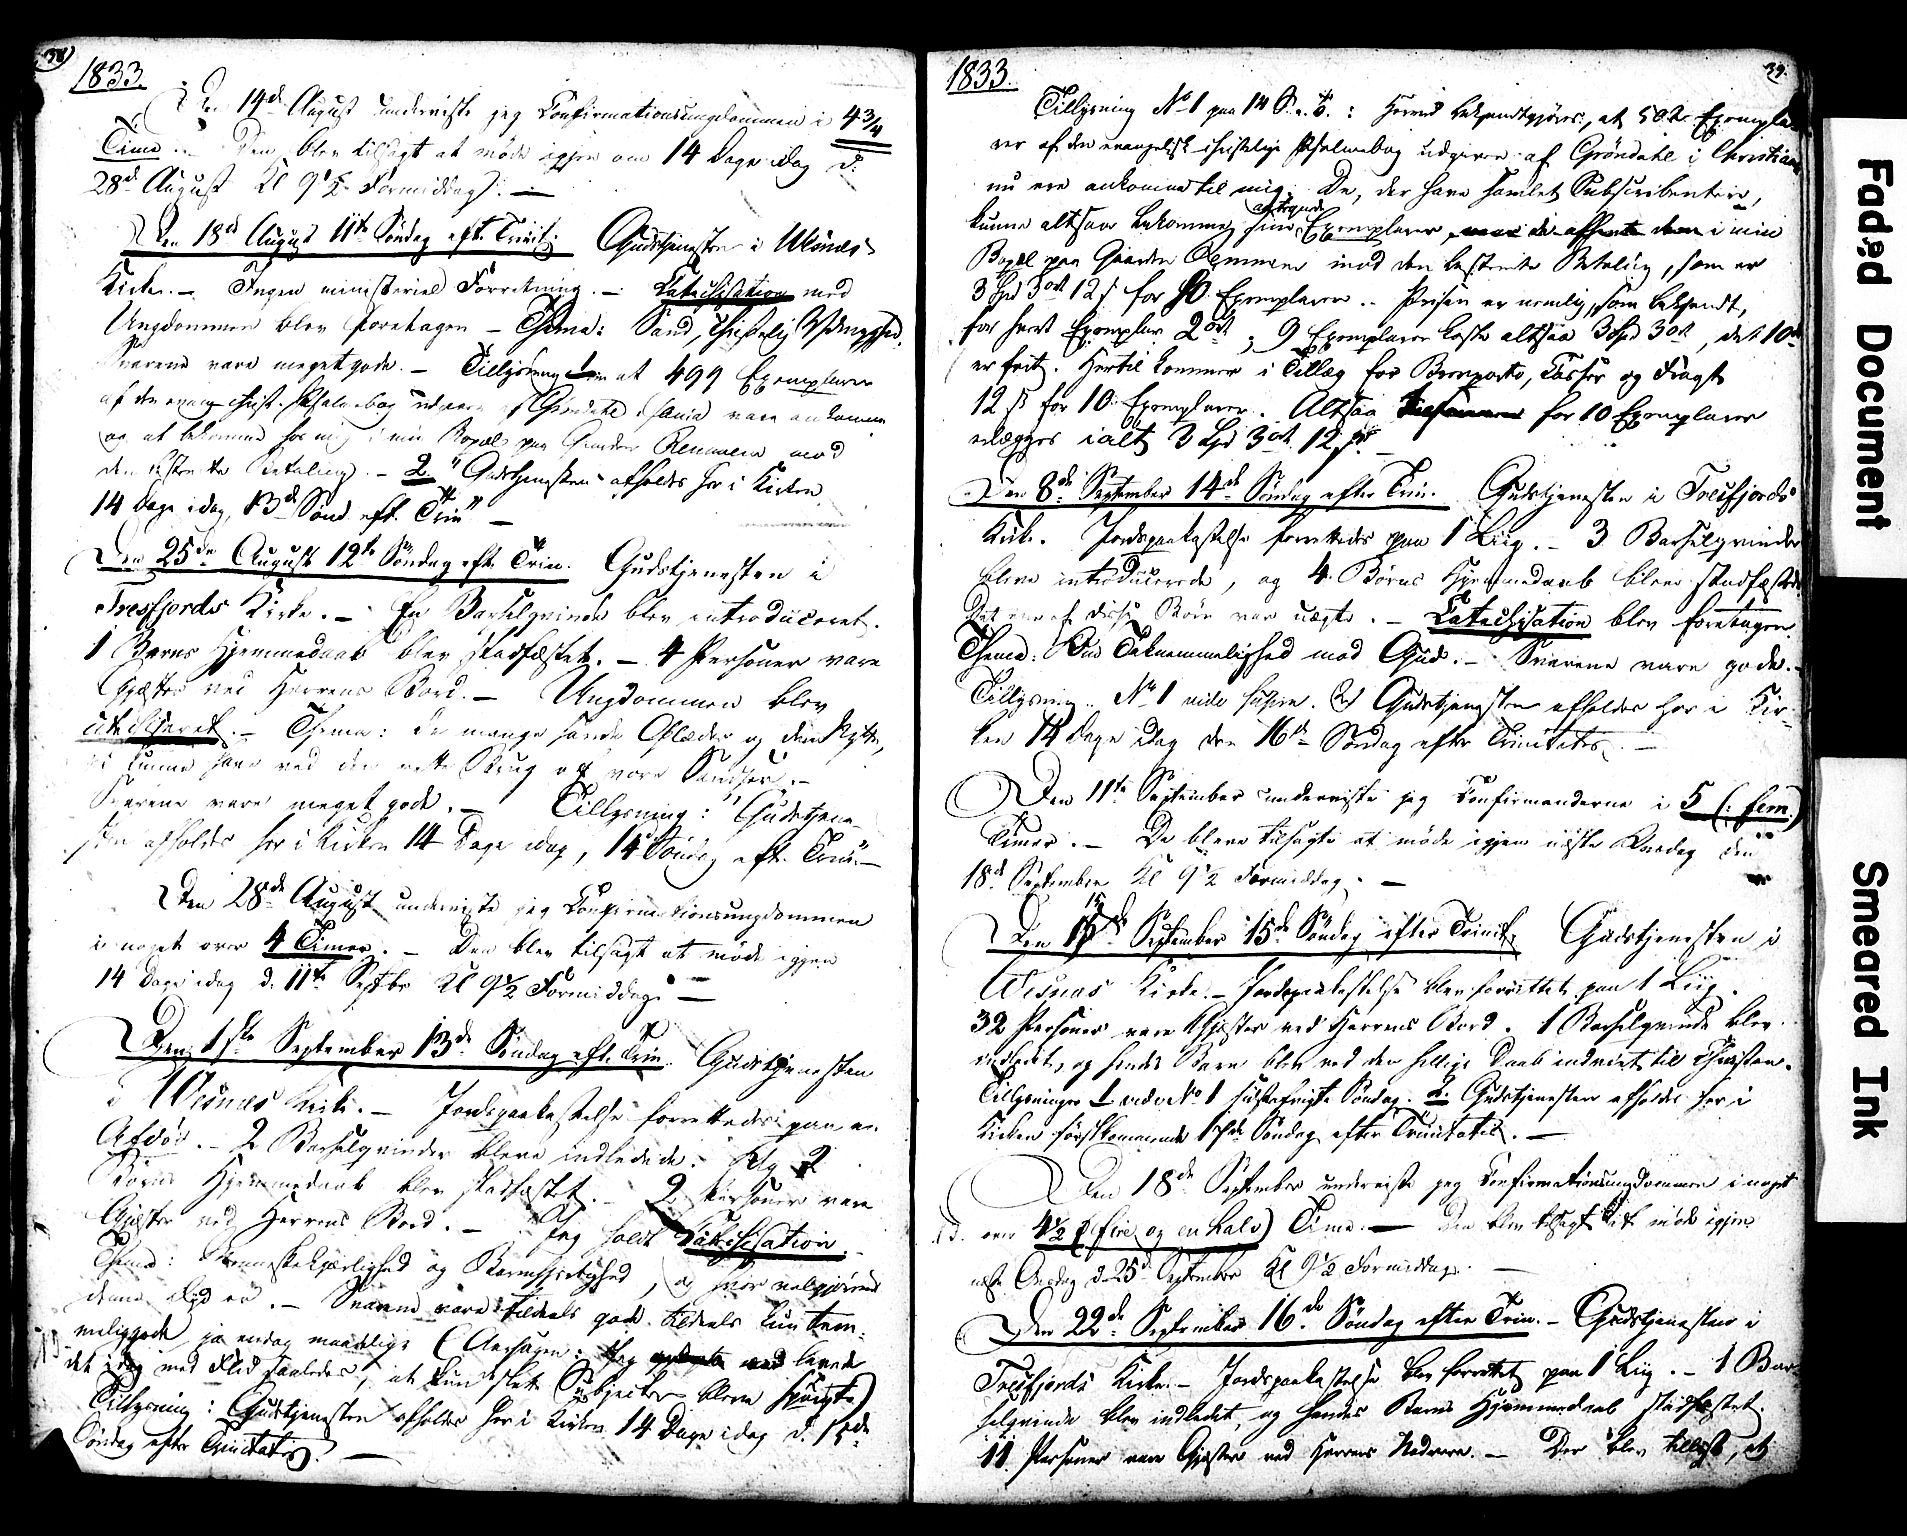 38
1833.
Den 14de August underviste jeg Confirmationsungdommen i 4 3/4
Time. – Den blev tilsagt at møde igjen om 14 Dage idag d.
28de August Kl 9 1/2 Formiddag. –
Den 18de August 11te Søndag eft. Trinit. Gudstjenesten i
Kirke. – Ingen ministeriel Forretning. – Catechisation med
Ungdommen blev foretagen – Thema: Sand, christelig
Svarene vare meget gode. – Tillysning at 499 Exemplarer
af den evang christ. Psalmebog udgiven af Grøndahl vare ankomne
og at bekomme hos mig i min Bopæl paa Gaarden mod
den bestemte Betaling. – 2. "Gudstjenesten afholdes her i Kirken
14 Dage idag, 13de Sønd. eft. Trin" –
Den 25de August 12te Søndag eft. Trin. Gudstjenesten i
Tresfjords Kirke. – En Barselqvinde blev introduceret.
1 Barns Hjemmedaab blev stadfæstet. – 4 Personer vare
Gjæster ved Herrens Bord. – Ungdommen blev
catechiseret. – Thema: de mange sande Glæder og den Nytte,
vi kunne have ved den rette Brug af vore Sandser. –
Svarene vare meget gode. – Tillysning: "Gudstjene-
sten afholdes her i Kirken 14 Dage idag, 14de Søndag eft. Trin." –
Den 28de August underviste jeg Confirmationsungdommen
i noget over 4 Timer. – Den blev tilsagt at møde igjen
14 Dage idag d. 11te Septbr Kl 9 1/2 Formiddag. –
Den 1ste September 13de Søndag eft. Trin. Gudstjenesten
i Kirke. – Jordspaakastelse forrettedes paa en
Afdød. – 2 Barselqvinder bleve indledede. 2
Børns Hjemmedaab blev stadfæstet. – 2 Personer vare
Gjæster ved Herrens Bord. – Jeg holdt Catechisation. –
Thema: Menneskekjærlighed og Barmhjertighed, og hvor velgjørende
denne Dyd er. – Svarene vare tildeels gode tildeels kun tem-
meliggode ja endog maadelige (Aarsagen: Jeg lavede
det idag med Flid saaledes, at kun slette Subjecter bleve spurgte)
Tillysning: Gudstjenesten afholdes her i Kirken 14 Dage idag d. 15de
Søndag efter Trinitatis. –
1833.
39.
Tillysning No 1 paa 14 S. e. T.: Herved bekjendtgjøres, at 50 Exempla-
rer af den evangelisk christelige Psalmebog udgiven af Grøndahl i Christian
nu ere ankomne til mig. De, der have samlet Subscribentere,
kunne altsaa bekomme sine Exemplarer, i min
Bopæl paa Gaarden mod den bestemte Betaling, som er
3 Spd 3 ort 12 s for 10 Exemplarer. – Prisen er nemlig, som bekjendt,
for hvert Exemplar 2 ort, 9 Exemplarer koste altsaa 3 Spd 3 ort, det 10de
er frit. Hertil kommer i Tillæg for Brevporto, og Fragt
12 s for 10 Exemplarer. Altsaa for 10 Exemplarer
erlægges ialt 3 Spd 3 ort 12 s. –
Den 8de September 14de Søndag efter Trin. Gudstjenesten i Tresfjords
Kirke. Jordspaakastelse forrettedes paa 1 Liig. – 3 Barselqvinder
bleve introducerede, og 4 Børns Hjemmedaab bleve stadfæstede.
Det ene af disse Børn var uægte. – Catechisation blev foretagen.
Thema: Om Taknemmelighed mod Gud. – Svarene vare gode. –
Tillysning. No 1 vide 2) Gudstjenesten afholdes her i Kir-
ken 14 Dage idag den 16de Søndag efter Trinitatis. –
Den 11te September underviste jeg Confirmanderne i 5 (: fem)
Timer. – De bleve tilsagte at møde igjen næste Onsdag den
18de September Kl 9 1/2 Formiddag. –
Den 15de September 15de Søndag efter Trinit. Gudstjenesten i
Kirke. – Jordspaakastelse blev forrettet paa 1 Liig.
32 Personer vare Gjæster ved Herrens Bord. 1 Barselqvinde blev
indledet, og hendes Barn blev ved den hellige Daab indviet til
Tillysninger 1 No 1 Søndag. 2. Gudstjenesten afholdes her i
Kirken førstkommende 17de Søndag efter Trinitatis. –
Den 18de September underviste jeg Confirmationsungdommen i noget
over 4 1/2 (fire og en halv) Time. – Den blev tilsagt at møde igjen
næste Onsdag d. 25de September Kl 9 1/2 Formiddag. –
Den 22de September 16de Søndag efter Trin. – Gudstjenesten i
Tresfjords Kirke. – Jordspaakastelse blev forrettet paa 1 Liig. – 1 Bar-
selqvinde blev indledet, og hendes Barns Hjemmedaab stadfæstet.
11 Personer vare Gjæster ved Herrens Nadvere. – Der blev tillyst, at
Faded Document
Smeared Ink